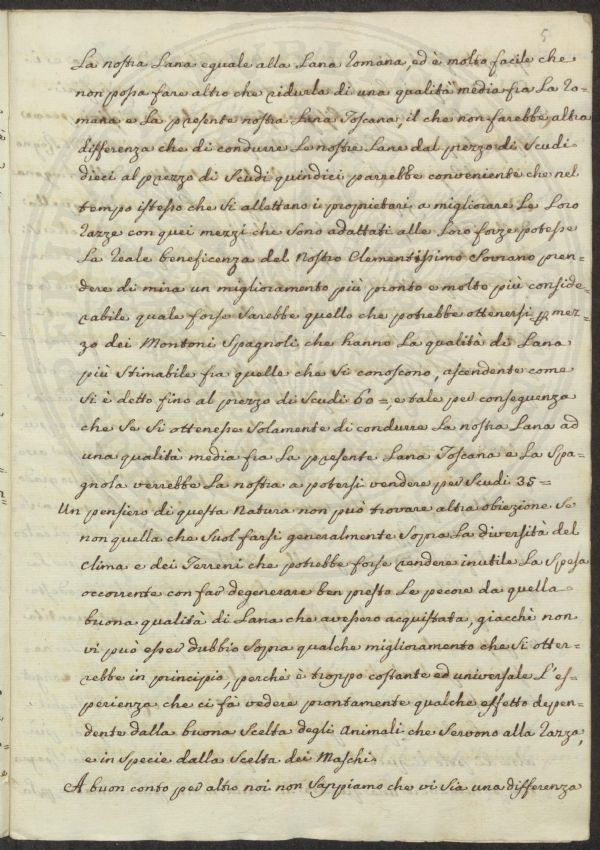 5
La nostra Lana eguale alla Lana Romana, ed è molto facile che
non possa fare altro che ridurla di una qualità media fra La Ro=
mana e La presente nostra Lana Toscana, il che non farebbe altra
differenza che di condurre Le nostre Lane dal prezzo di Scudi
dieci al prezzo di Scudi quindici parrebbe conveniente che nel
tempo istesso che Si allettano i proprietari a migliorare Le Loro
Razze con quei mezzi che Sono adattati alle Loro forze potesse
La Reale beneficenza del Nostro Clementissimo Sovrano pren=
dere di mira un miglioramento più pronto e molto più conside=
rabile quale forse Sarebbe quello che potrebbe ottenersi p mez=
zo dei Montoni Spagnoli che hanno La qualità di Lana
più Stimabile fra quelle che Si conoscono, ascendente come
Si è detto fino al prezzo di Scudi 60=, e tale per conseguenza
che Se Si ottenesse Solamente di condurre La nostra Lana ad
una qualità media fra La presente Lana Toscana e La Spa=
gnola verrebbe La nostra a potersi vendere per Scudi 35=
Un pensiero di questa Natura non può trovare altra obiezione Se
non quella che Suol farsi generalmente Sopra La diversità del
Clima e dei Terreni che potrebbe forse rendere inutile La Spesa
occorrente con far degenerare ben presto Le pecore da quella
buona qualità di Lana che avessero acquistata, giacchè non
vi può esser dubbio Sopra qualche miglioramento che Si otter=
rebbe in principio, perchè è troppo costante ed universale L'es=
perienza che ci fà vedere prontamente qualche effetto depen=
dente dalla buona Scelta degli Animali che Servono alla Razza,
e in Specie dalla Scelta dei Maschi.
A buon conto per altro noi non Sappiamo che vi Sia una differenza